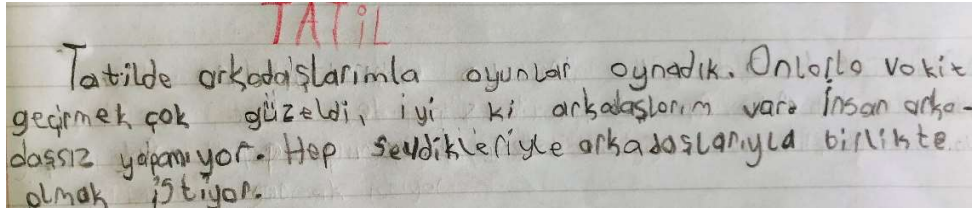 TATİL
Tatilde arkadaşlarımla oyunlar oynadık. Onlarla vakit
geçirmek çok güzeldi, iyi ki arkadaşlarım var. İnsan arka-
daşsız yapamıyor. Hep sevdikleriyle arkadaşlarıyla birlikte
olmak istiyor.